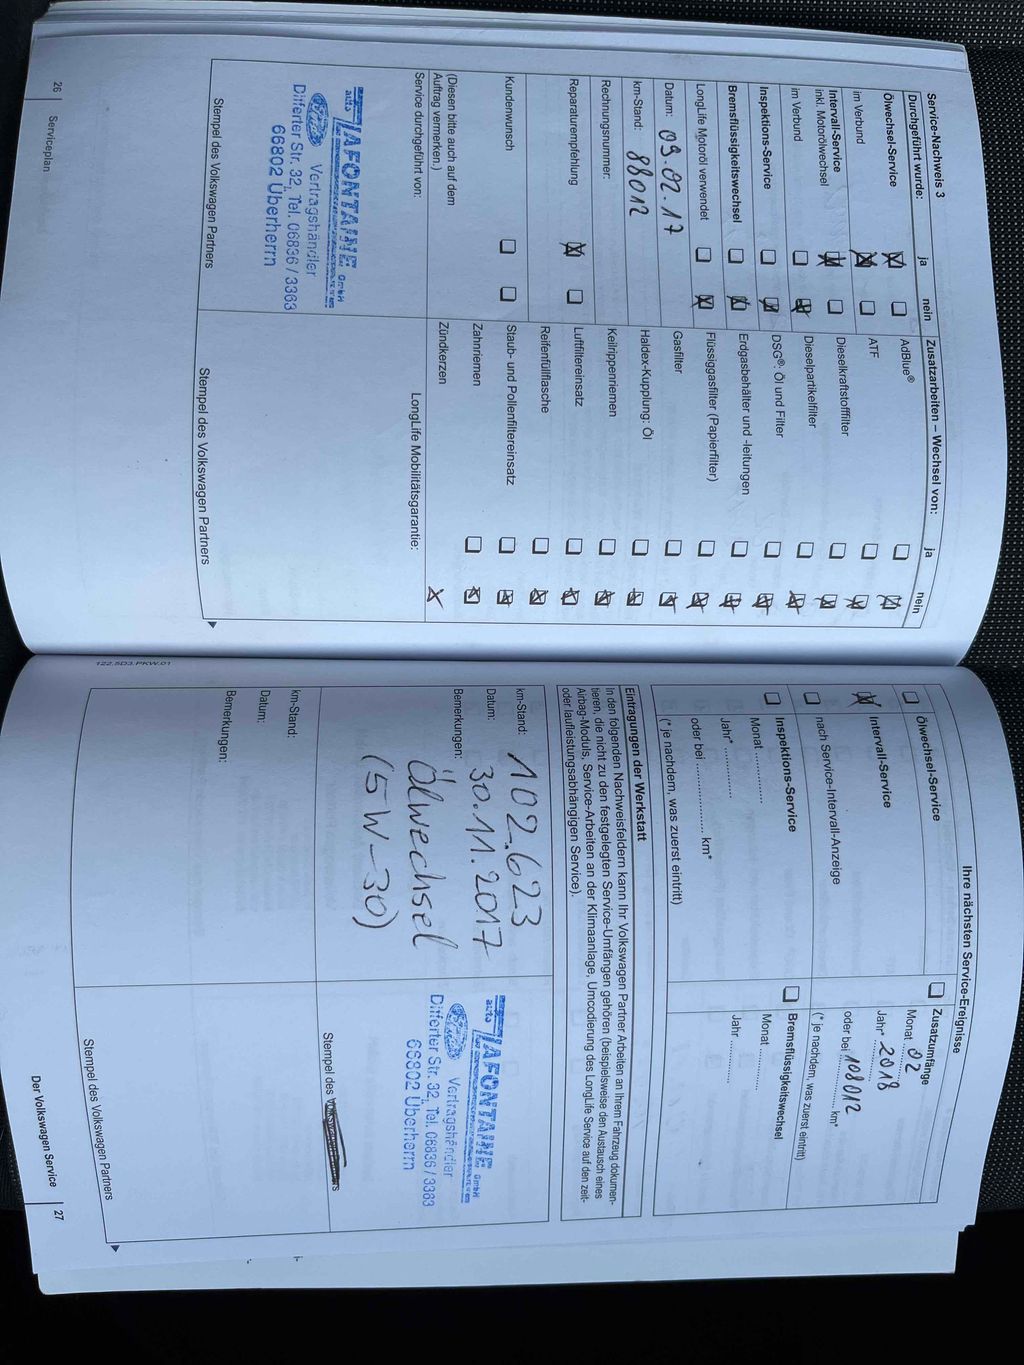 Service-Nachweis 3
Durchgeführt wurde: ja nein
Ölwechsel-Service
im Verbund
Intervall-Service
inkl. Motorölwechsel
im Verbund
Inspektions-Service
Bremsflüssigkeitswechsel
LongLife Motoröl verwendet
Datum: 09.02.17
km-Stand: 88012
Rechnungsnummer:
Reparaturempfehlung
Kundenwunsch
(Diesen bitte auch auf dem
Auftrag vermerken.)
Service durchgeführt von:
auto LAFONTAINE GmbH
Vertragshändler
Differter Str. 32, Tel. 06836 / 3363
66802 Überherrn
Stempel des Volkswagen Partners
Zusatzarbeiten – Wechsel von: ja nein
AdBlue®
ATF
Dieselkraftstofffilter
Dieselpartikelfilter
DSG®: Öl und Filter
Erdgasbehälter und -leitungen
Flüssiggasfilter (Papierfilter)
Gasfilter
Haldex-Kupplung: Öl
Keilrippenriemen
Luftfiltereinsatz
Reifenfüllflasche
Staub- und Pollenfiltereinsatz
Zahnriemen
Zündkerzen
LongLife Mobilitätsgarantie:
Stempel des Volkswagen Partners
26 Serviceplan
122.5D3.PKW.01
Ihre nächsten Service-Ereignisse
Ölwechsel-Service
Intervall-Service
nach Service-Intervall-Anzeige
Inspektions-Service
Monat ............
Jahr* ............
oder bei .................... km*
(* je nachdem, was zuerst eintritt)
Zusatzumfänge
Monat 02
Jahr* 2018
oder bei 108012 km*
(* je nachdem, was zuerst eintritt)
Bremsflüssigkeitswechsel
Monat ............
Jahr ............
Eintragungen der Werkstatt
In den folgenden Nachweisfeldern kann Ihr Volkswagen Partner Arbeiten an Ihrem Fahrzeug dokumen-
tieren, die nicht zu den festgelegten Service-Umfängen gehören (beispielsweise den Austausch eines
Airbag-Moduls, Service-Arbeiten an der Klimaanlage, Umcodierung des LongLife Service auf den zeit-
oder laufleistungsabhängigen Service).
km-Stand: 102.623
Datum: 30.11.2017
Bemerkungen: Ölwechsel
(5W-30)
auto LAFONTAINE GmbH
Vertragshändler
Differter Str. 32, Tel. 06836 / 3363
66802 Überherrn
Stempel des
km-Stand:
Datum:
Bemerkungen:
Stempel des Volkswagen Partners
Der Volkswagen Service 27